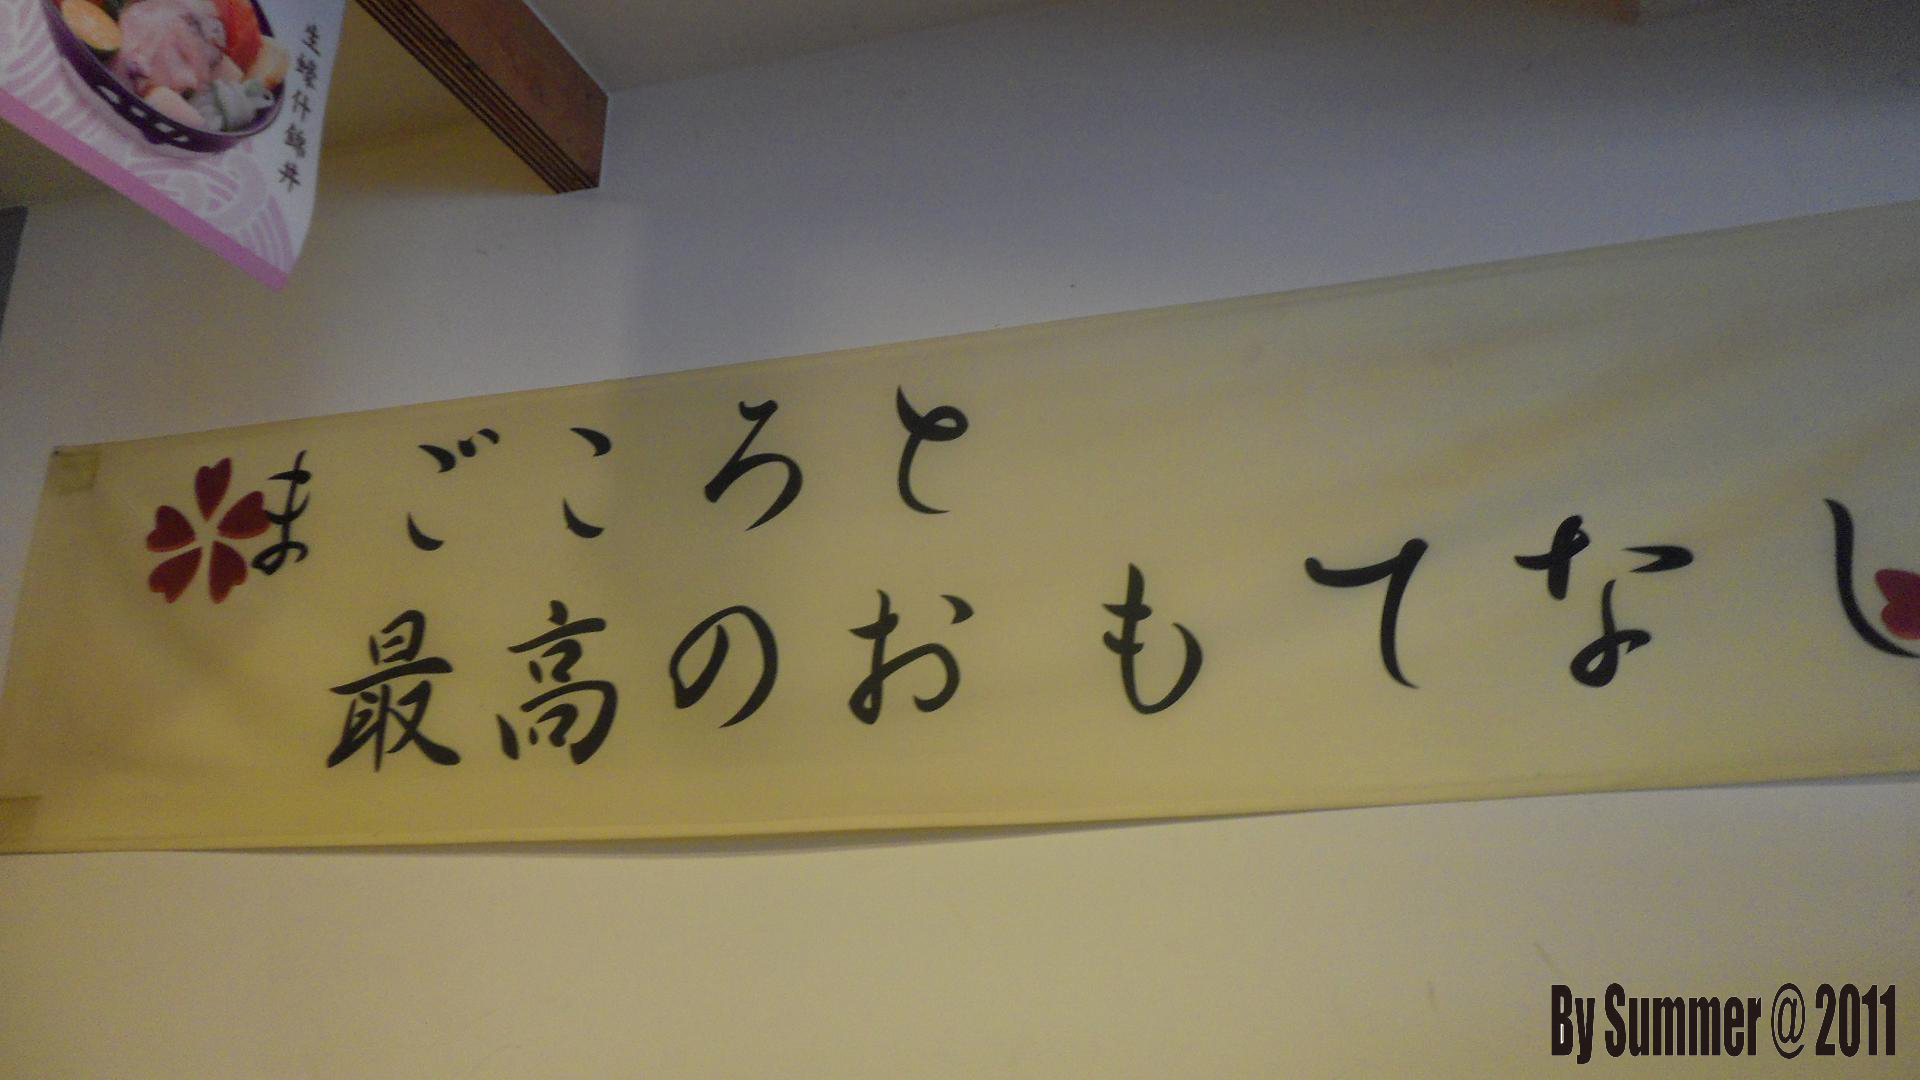 生蠔什錦丼
まごころと
最高のおもてなし
By Summer @ 2011